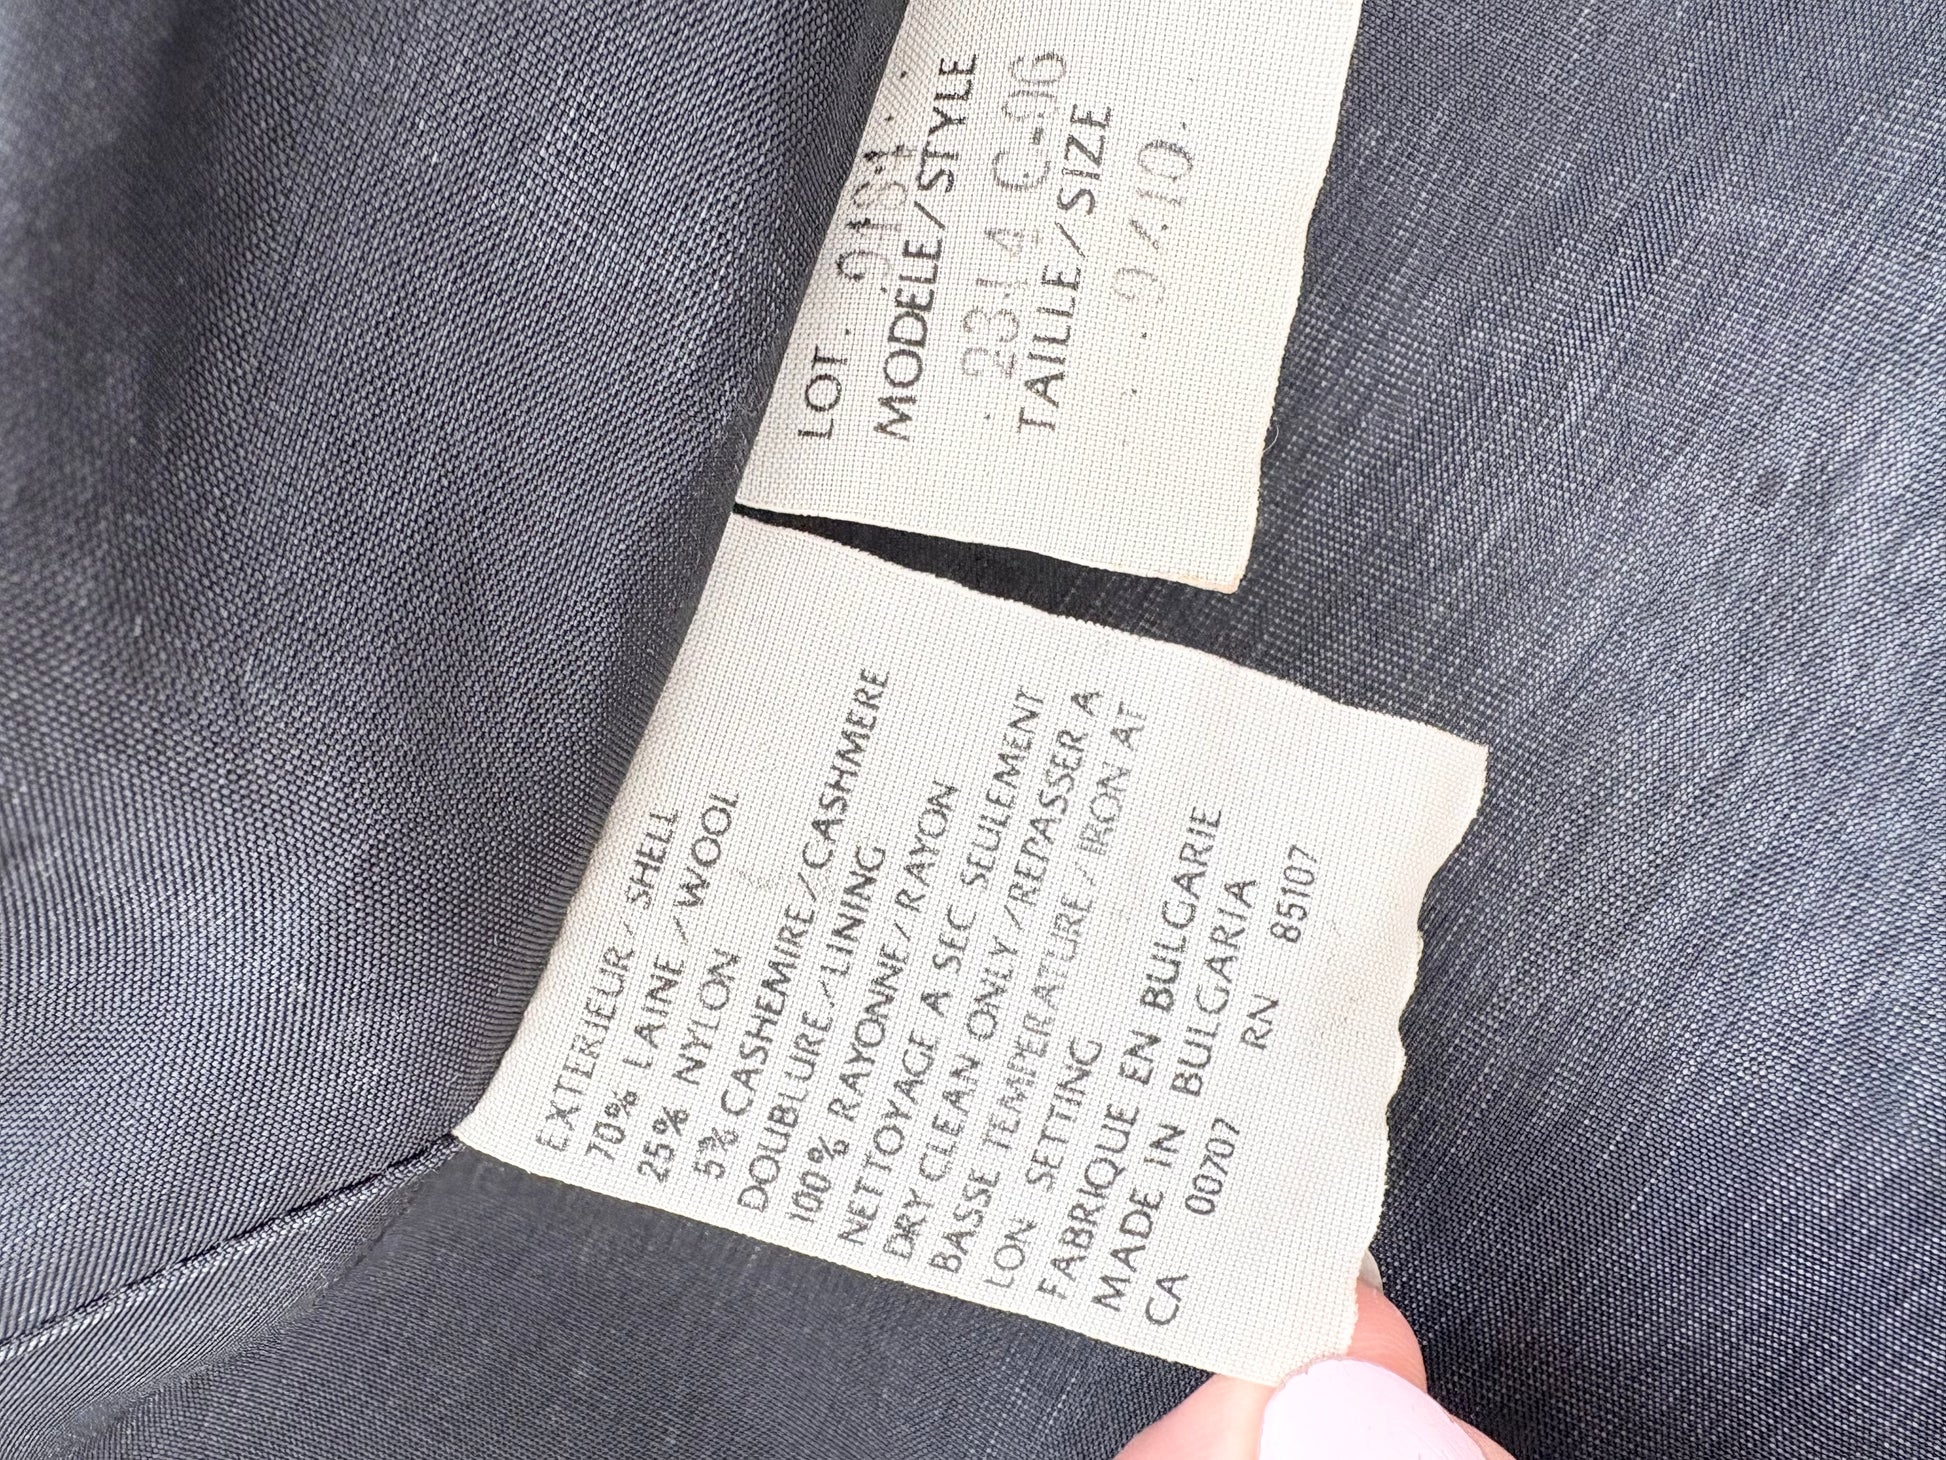 LOT
MODELE/STYLE
2314 C-06
TAILLE/SIZE
9/10
EXTERIEUR/SHELL
70% LAINE/WOOL
25% NYLON
5% CASHEMIRE/CASHMERE
DOUBLURE/LINING
100% RAYONNE/RAYON
NETTOYAGE A SEC SEULEMENT
DRY CLEAN ONLY/REPASSER A
BASSE TEMPERATURE/IRON AT
LON SETTING
FABRIQUE EN BULGARIE
MADE IN BULGARIA
CA 00707 RN 85107